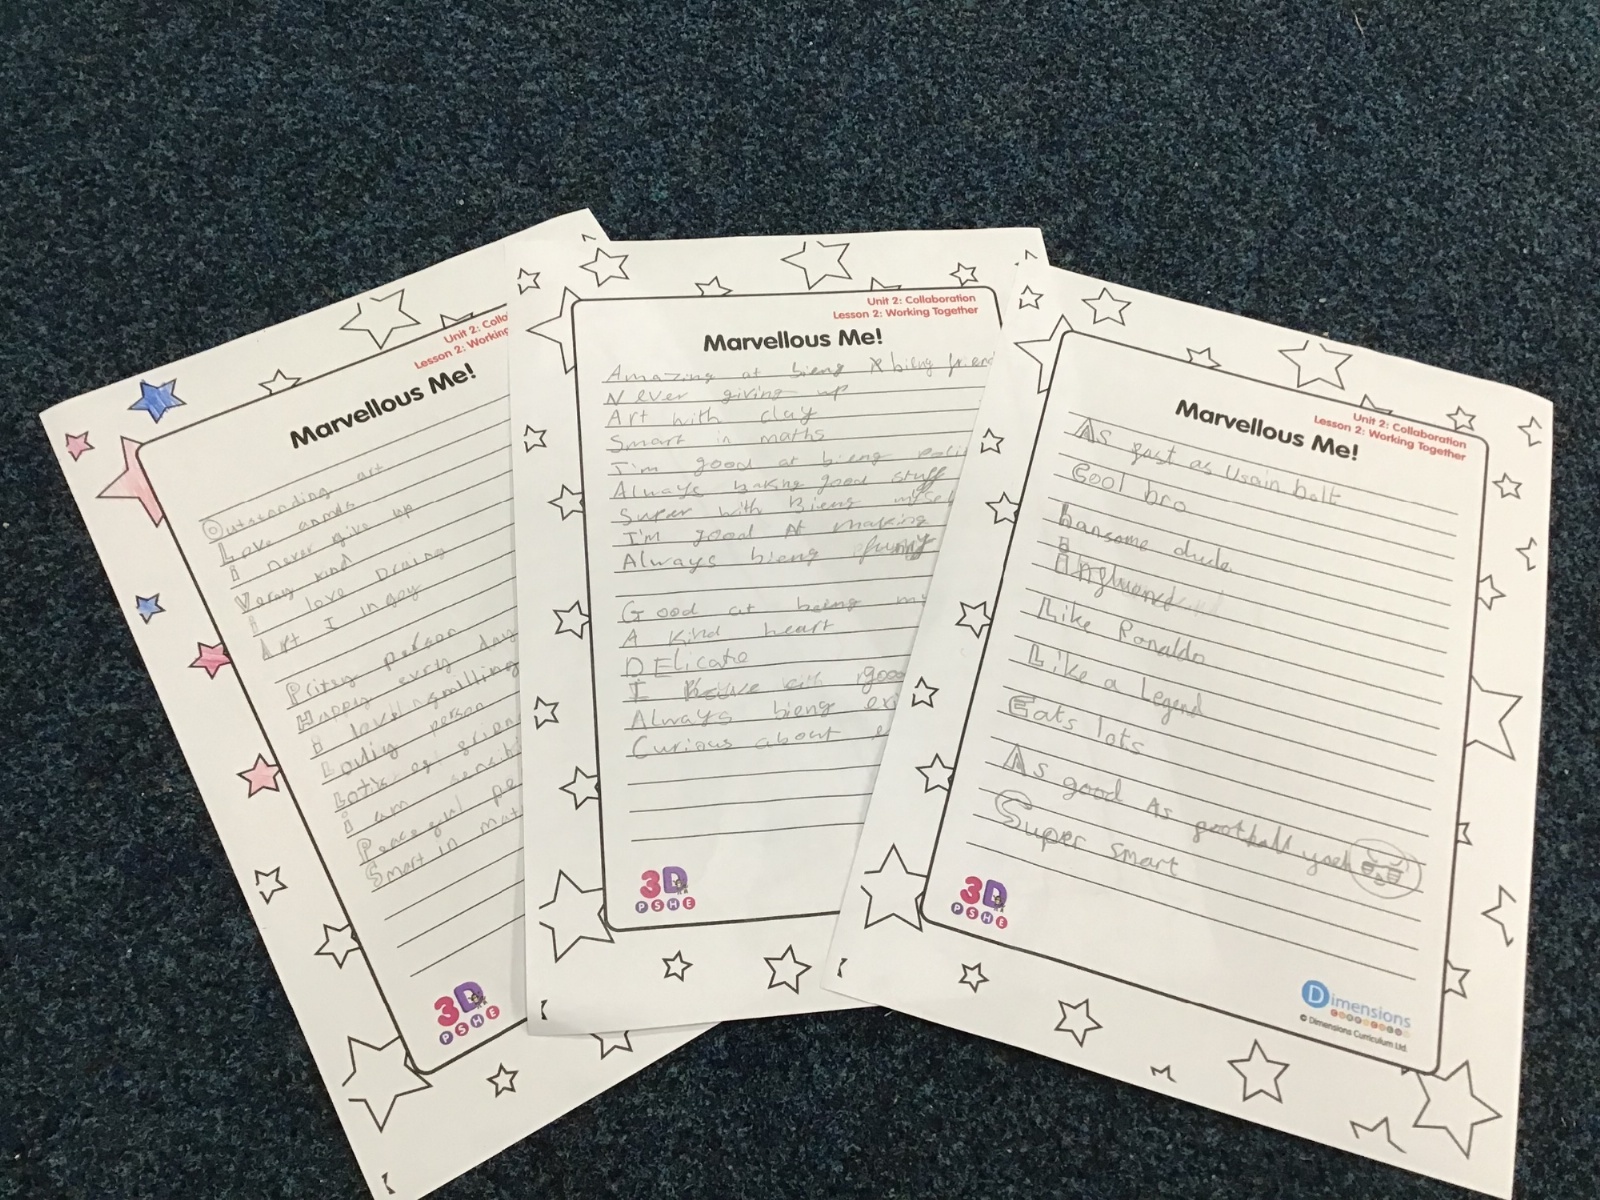 Unit 2: Colla
Lesson 2: Working
Marvellous Me!
Outsanding art
Love
I never give up
Veray kind
I love Draing
Art I
Pritey person
Happy evry day
I
person
I am
Peacegul
Smart in mat
3D
PSHE
Unit 2: Collaboration
Lesson 2: Working Together
Marvellous Me!
Amazing at bieng bieng frien
Never giving up
Art with clay
Smart in maths
I'm good at bieng
Always good stuff
Super with Bieng myse
I'm good At making
Always bieng funny
Good at being my
A kind heart
DElicate
I goo
Always bieng
Curious about e
3D
PSHE
Unit 2: Collaboration
Lesson 2: Working Together
Marvellous Me!
As gast as Usain bolt
Cool bro
hansome dude
Like Ronaldo
Like a Legend
Eats lots
As good As gootball
Super smart
3D
PSHE
Dimensions
© Dimensions Curriculum Ltd.